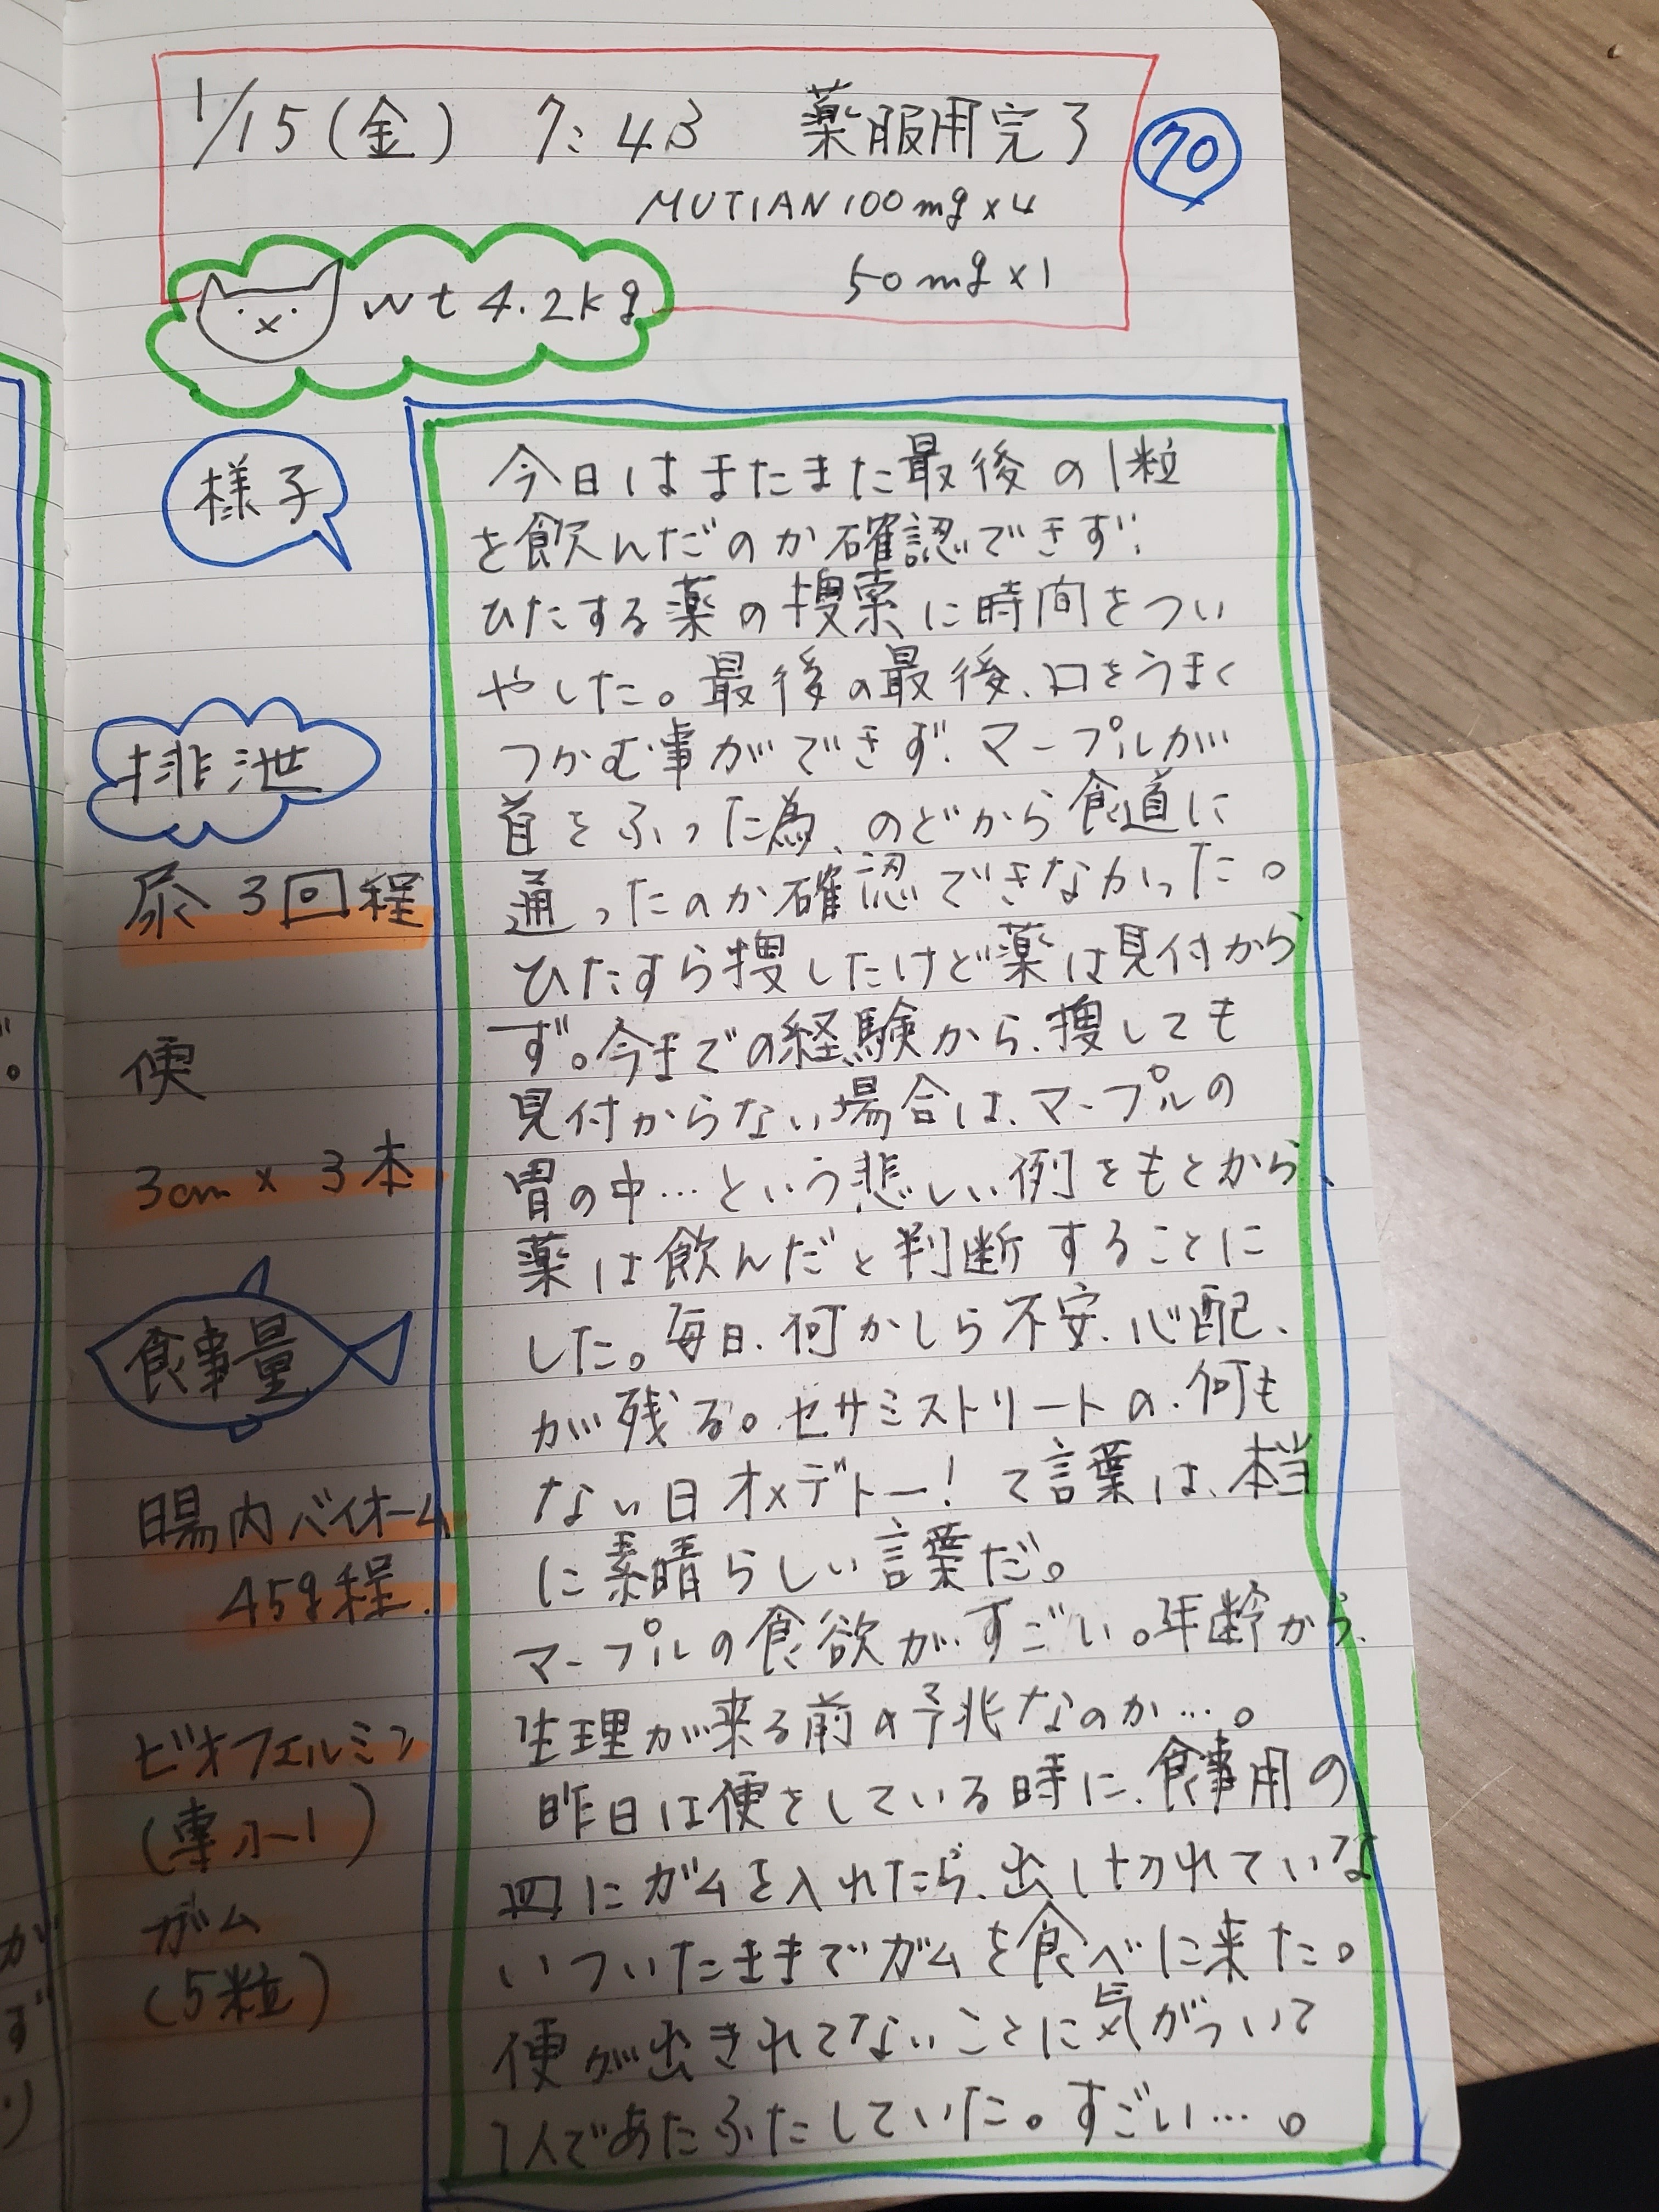 1/15(金) 7:43 薬服用完了
70
MUTIAN 100mg×4
50mg×1
wt 4.2kg
様子
今日はまたまた最後の1粒
を飲んだのか確認できず、
ひたする薬の捜索に時間をつい
やした。最後の最後、口をうまく
つかむ事ができず、マープルが
首をふった為、のどから食道に
通ったのか確認できなかった。
ひたすら捜したけど薬は見付から
ず。今までの経験から、捜しても
見付からない場合は、マープルの
胃の中…という悲しい例をもとから、
薬は飲んだと判断することに
した。毎日、何かしら不安、心配、
が残る。セサミストリートの、何も
ない日オメデトー!て言葉は、本当
に素晴らしい言葉だ。
マープルの食欲がすごい。年齢から、
生理が来る前の予兆なのか…。
昨日は便をしている時に、食事用の
皿にガムを入れたら、出し切れていな
いついたままでガムを食べに来た。
便が出きれてないことに気がついて
1人であたふたしていた。すごい…。
排泄
尿 3回程
便
3cm × 3本
食事量
腸内バイオーム
45g程.
ビオフェルミン
(専用-1)
ガム
(5粒)